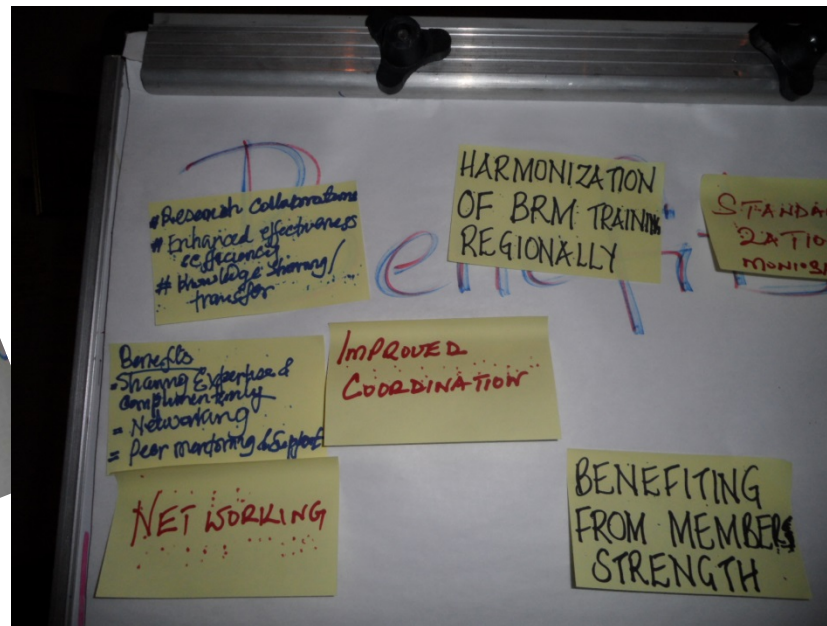 Benefits
# Research Collaborations
# Enhanced effectiveness
& efficiency
# Knowledge sharing/
transfer
HARMONIZATION
OF BRM TRAINING
REGIONALLY
STANDA
ZATIO
Benefits
- Sharing Expertise &
complimentarity
= Networking
= Peer mentoring & Support
IMPROVED
COORDINATION
NETWORKING
BENEFITING
FROM MEMBERS
STRENGTH